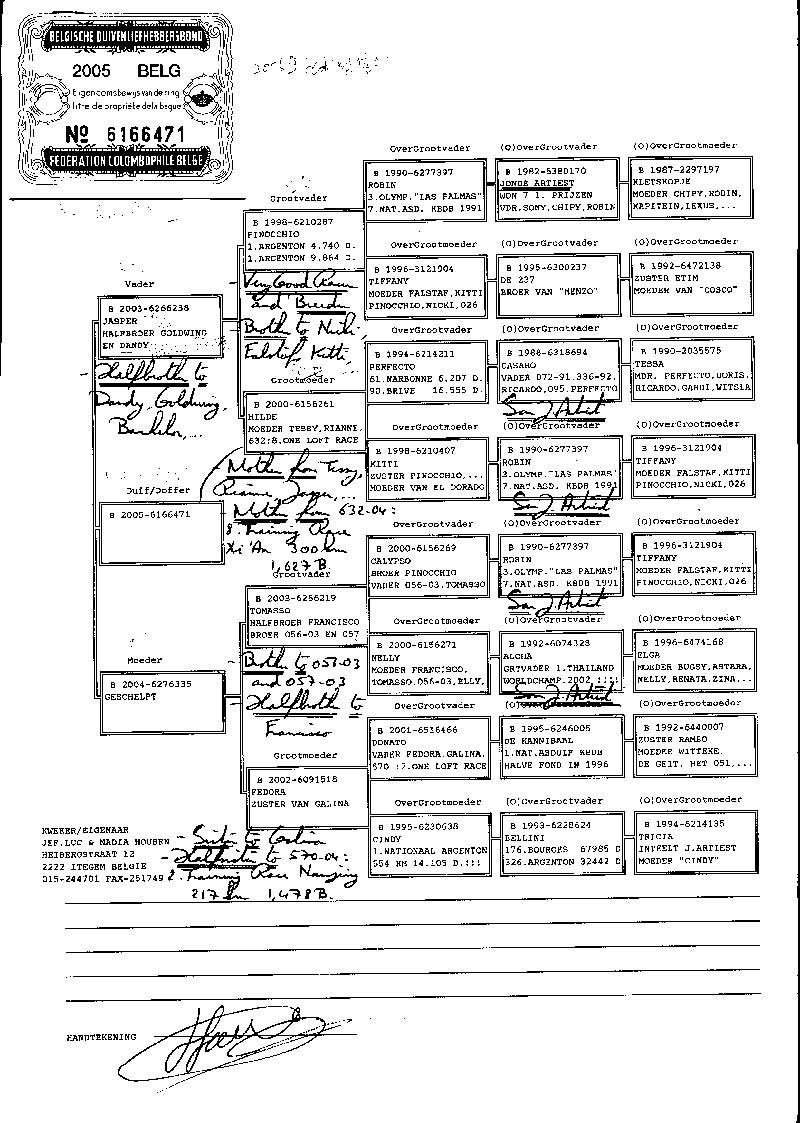 BELGISCHE DUIVENLIEFHEBBERSBOND
2005 BELG
Eigendomsbewijs van de ring
titre de propriété de la bague
Nº 6166471
FEDERATION COLOMBOPHILE BELGE
Vader
B 2003-6266238
JASPER
HALFBROER GOLDWING
EN DANDY
Halfbroth to
Dandy, Goldwing,
Duif/Doffer
B 2005-6166471
Moeder
B 2004-6276335
GESCHELPT
Grootvader
B 1998-6210287
PINOCCHIO
1.ARGENTON 4.740 D.
1.ARGENTON 9.864 D.
Very Good Racer
and Breeder
Broth to Nicki
Falstaf, Kitti,
Grootmoeder
B 2000-6156261
HILDE
MOEDER TESSY,RIANNE,
632:8.ONE LOFT RACE
Mother from Tessy,
Rianne, Jasper,...
Mother from 632-04:
8. Training Race
Xi'An 300 km
1,627 B.
Grootvader
B 2003-6256219
TOMASSO
HALFBROER FRANCISCO
BROER 056-03 EN 057
Broth to 057-03
and 057-03
Halfbroth to
Francisco
Grootmoeder
B 2002-6091518
FEDORA
ZUSTER VAN GALINA
Sister to Galina
Halfsister to 570-04:
2. Training Race Nanjing
217 km 1,478 B.
OverGrootvader
B 1990-6277397
ROBIN
3.OLYMP."LAS PALMAS"
7.NAT.ASD. KBDB 1991
OverGrootmoeder
B 1996-3121904
TIFFANY
MOEDER FALSTAF,KITTI
PINOCCHIO,NICKI,026
OverGrootvader
B 1994-6214211
PERFECTO
61.NARBONNE 6.207 D.
90.BRIVE 16.555 D.
OverGrootmoeder
B 1998-6210407
KITTI
ZUSTER PINOCCHIO,...
MOEDER VAN EL DORADO
OverGrootvader
B 2000-6156269
CALYPSO
BROER PINOCCHIO
VADER 056-03.TOMASSO
OverGrootmoeder
B 2000-6156271
NELLY
MOEDER FRANCISCO,
TOMASSO,056-03,ELLY,
OverGrootvader
B 2001-6516466
DONATO
VADER FEDORA,GALINA,
570 :2.ONE LOFT RACE
OverGrootmoeder
B 1995-6230638
CINDY
1.NATIONAAL ARGENTON
554 KM 14.105 D.!!!
(O)OverGrootvader
B 1982-6380170
JONGE ARTIEST
WON 7 1. PRIJZEN
VDR.SONY,CHIPY,ROBIN
(O)OverGrootvader
B 1995-6300237
DE 237
BROER VAN "HENZO"
(O)OverGrootvader
B 1988-6318694
CASAHO
VADER 072-91.336-92.
RICARDO,095.PERFECTO
Son J. Artist
(O)OverGrootvader
B 1990-6277397
ROBIN
3.OLYMP."LAS PALMAS"
7.NAT.ASD. KBDB 1991
Son J. Artist
(O)OverGrootvader
B 1990-6277397
ROBIN
3.OLYMP."LAS PALMAS"
7.NAT.ASD. KBDB 1991
Son J. Artist
(O)OverGrootvader
B 1992-6074328
ALOHA
GRTVADER 1.THAILAND
WORLDCHAMP.2002 !!!!
Son J. Artist
(O)OverGrootvader
B 1995-6246005
DE KANNIBAAL
1.NAT.ASDUIF KBDB
HALVE FOND IN 1996
(O)OverGrootvader
B 1993-6228624
BELLINI
176.BOURGES 67985 D
326.ARGENTON 32442 D
(O)OverGrootmoeder
B 1987-2297197
KLETSKOPJE
MOEDER CHIPY,ROBIN,
KAPITEIN,LEXUS,...
(O)OverGrootmoeder
B 1992-6472138
ZUSTER ETIM
MOEDER VAN "COSCO"
(O)OverGrootmoeder
B 1990-2035575
TESSA
MDR. PERFECTO,DORIS,
RICARDO,GANDI,WITSIA
(O)OverGrootmoeder
B 1996-3121904
TIFFANY
MOEDER FALSTAF,KITTI
PINOCCHIO,NICKI,026
(O)OverGrootmoeder
B 1996-3121904
TIFFANY
MOEDER FALSTAF,KITTI
PINOCCHIO,NICKI,026
(O)OverGrootmoeder
B 1996-6474168
ELGA
MOEDER BUGSY,ASTARA,
NELLY,RENATA,ZINA,..
(O)OverGrootmoeder
B 1992-6440007
ZUSTER RAMBO
MOEDER WITTEKE,
DE GEIT, HET 051,...
(O)OverGrootmoeder
B 1994-6214135
TRICIA
INTEELT J.ARTIEST
MOEDER "CINDY"
KWEKER/EIGENAAR
JEF,LUC & NADIA HOUBEN
HEIBERGSTRAAT 12
2222 ITEGEM BELGIE
015-244701 FAX-251749
HANDTEKENING